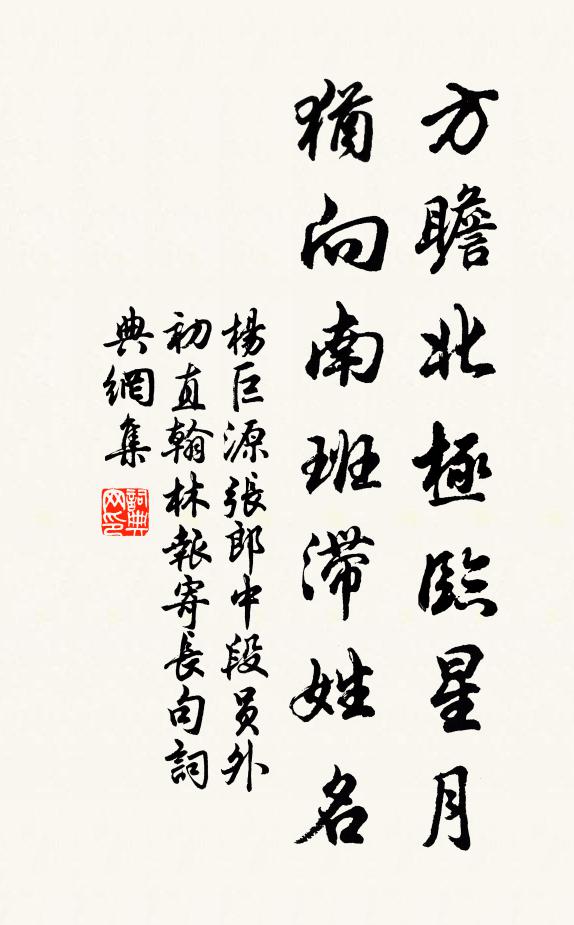 方瞻北極臨星月
猶向南班滯姓名
楊巨源張郎中段員外
初直翰林報寄長句詞
典網集
詞典
网印